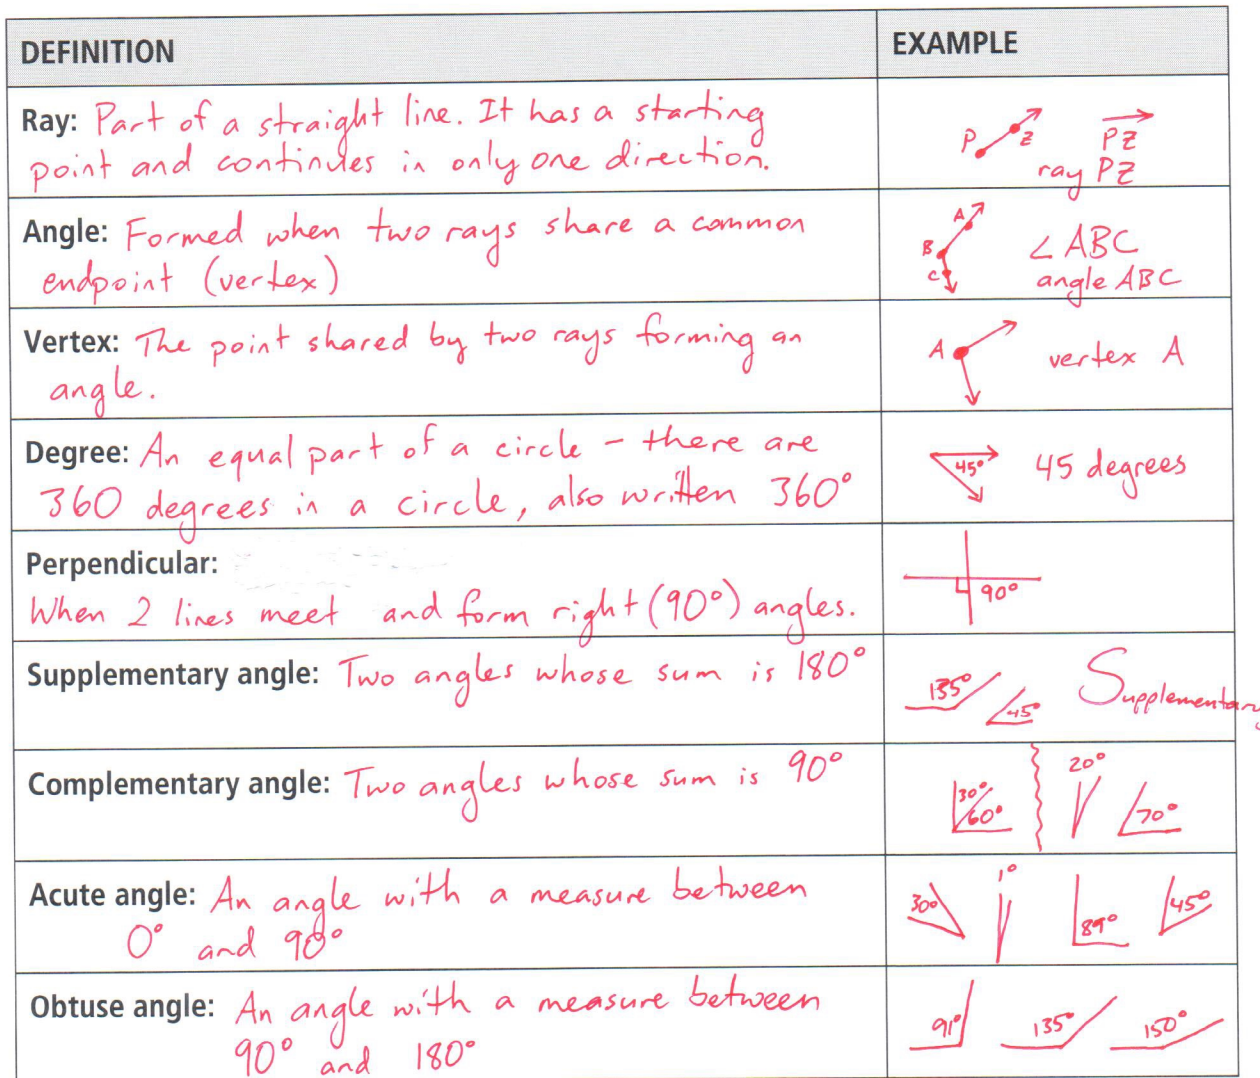 DEFINITION
EXAMPLE
Ray: Part of a straight line. It has a starting
point and continues in only one direction.
P Z PZ
ray PZ
Angle: Formed when two rays share a common
endpoint (vertex)
A
B
C
∠ ABC
angle ABC
Vertex: The point shared by two rays forming an
angle.
A vertex A
Degree: An equal part of a circle - there are
360 degrees in a circle, also written 360°
45° 45 degrees
Perpendicular:
When 2 lines meet and form right (90°) angles.
90°
Supplementary angle: Two angles whose sum is 180°
135° 45° Supplementary
Complementary angle: Two angles whose sum is 90°
30° 60° 20° 70°
Acute angle: An angle with a measure between
0° and 90°
30° 1° 89° 45°
Obtuse angle: An angle with a measure between
90° and 180°
91° 135° 150°